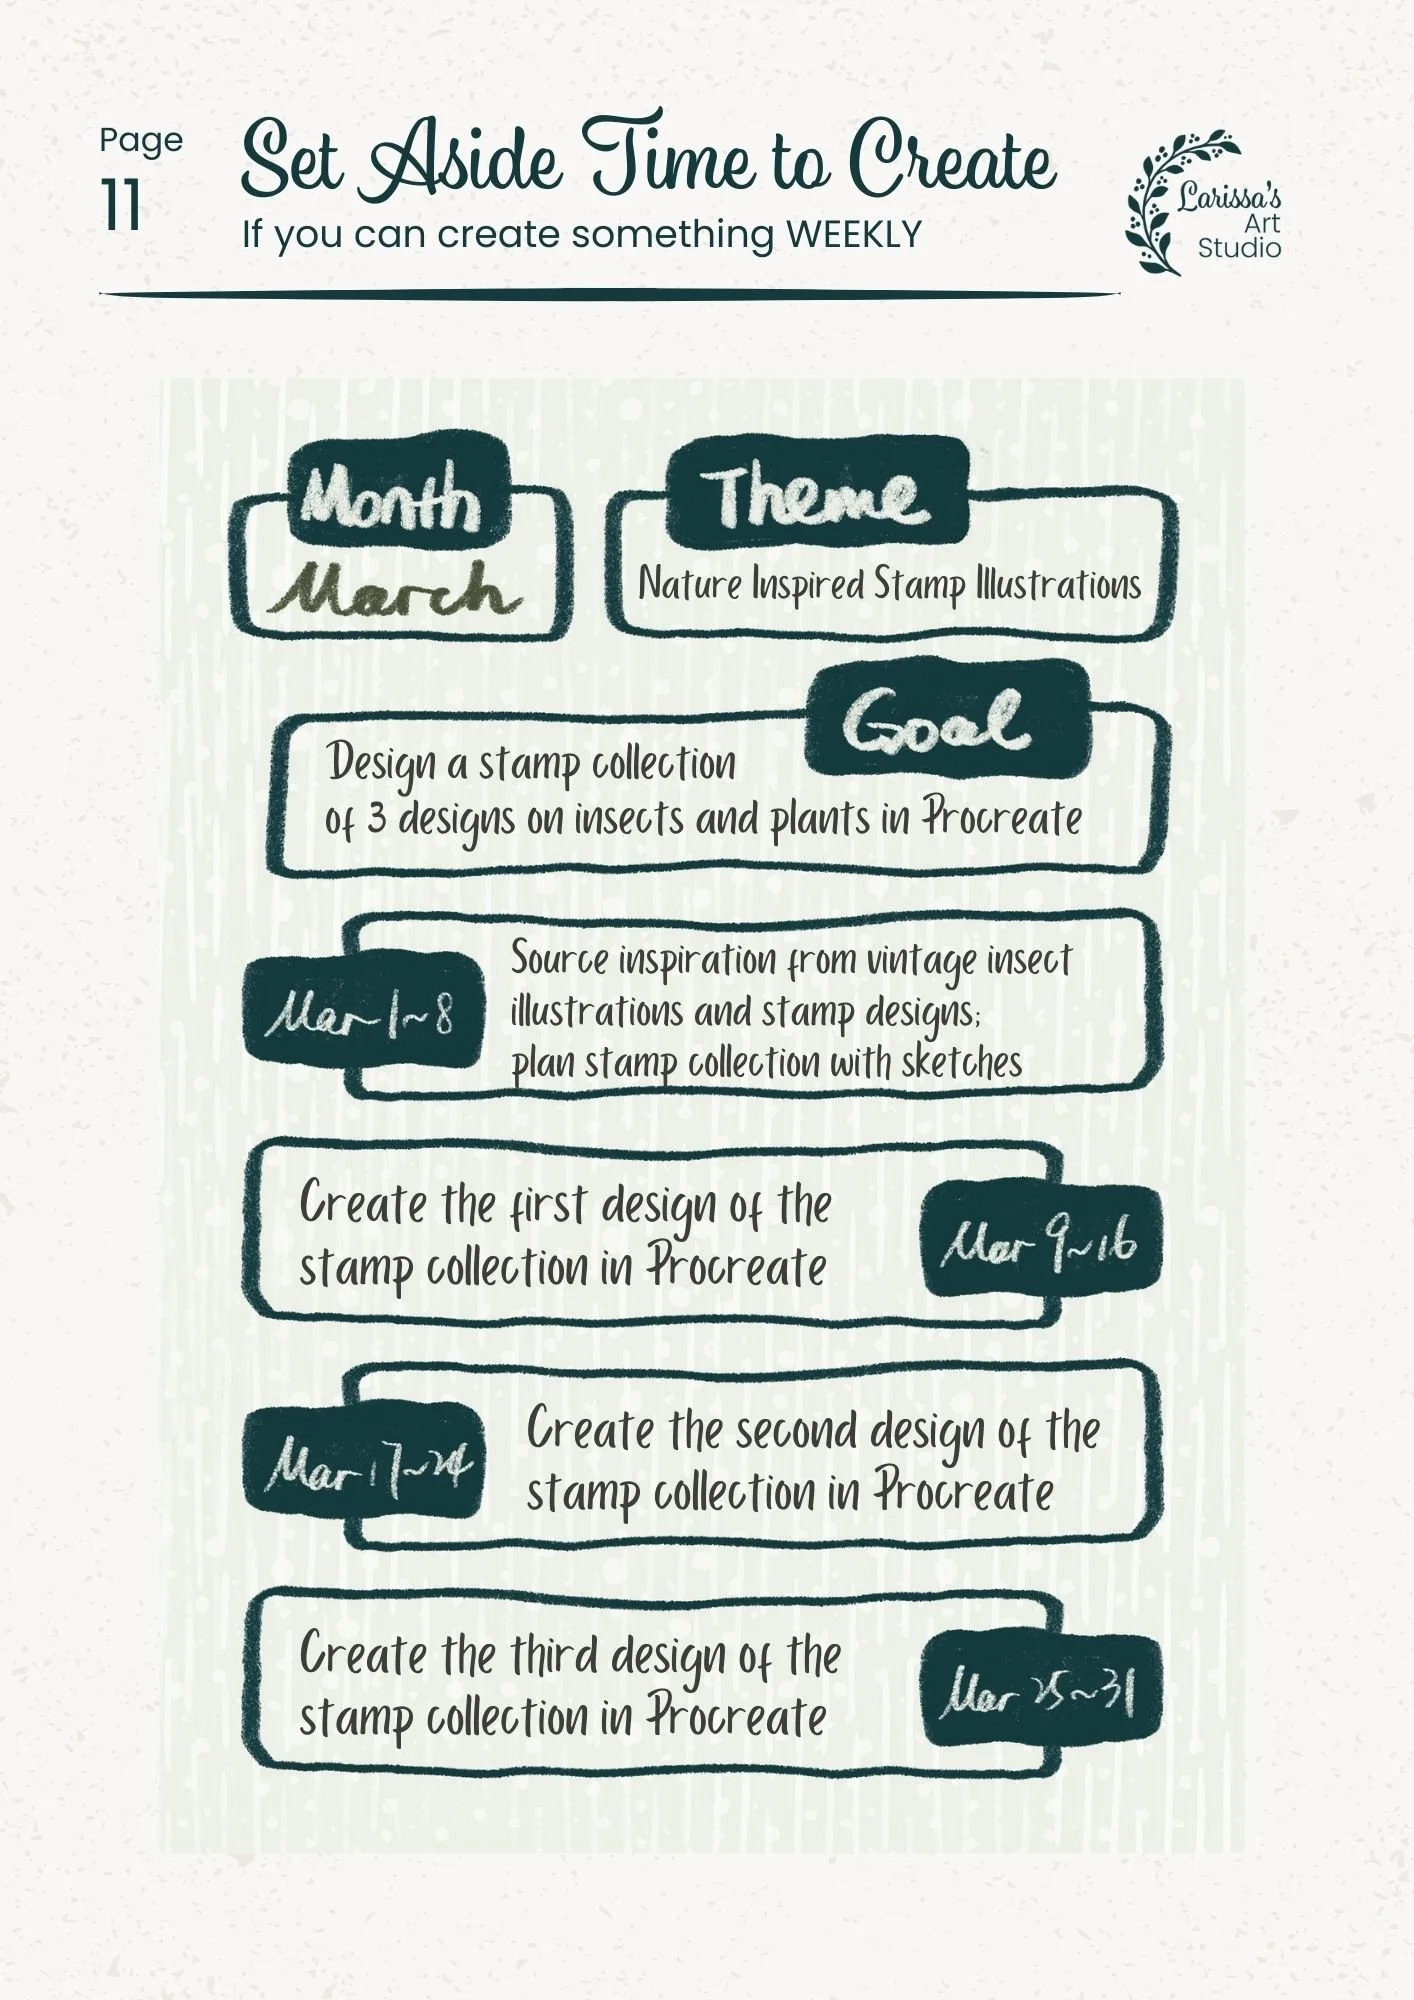 Page
11
Set Aside Time to Create
If you can create something WEEKLY
Larissa's
Art
Studio
Month
March
Theme
Nature Inspired Stamp Illustrations
Goal
Design a stamp collection
of 3 designs on insects and plants in Procreate
Mar 1~8
Source inspiration from vintage insect
illustrations and stamp designs;
plan stamp collection with sketches
Create the first design of the
stamp collection in Procreate
Mar 9~16
Mar 17~24
Create the second design of the
stamp collection in Procreate
Create the third design of the
stamp collection in Procreate
Mar 25~31